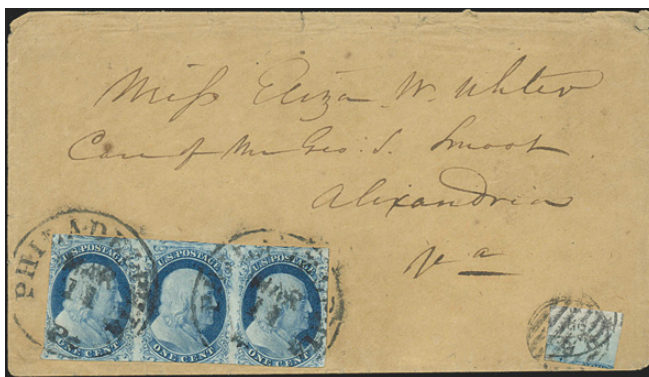 Miss Eliza W.
Care of Mr Geo. S. Smoot
Alexandria
Va
PHILADELPHIA
U.S. POSTAGE
ONE CENT
U.S. POSTAGE
ONE CENT
U.S. POSTAGE
ONE CENT